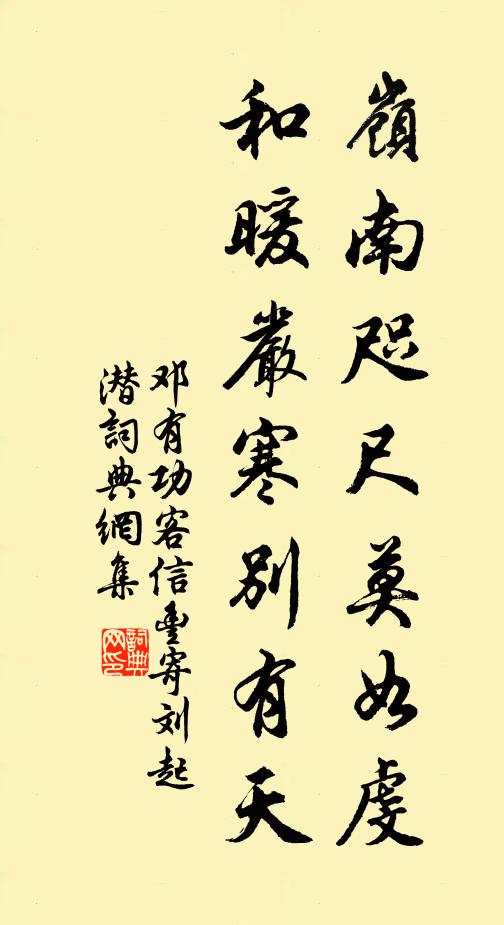 嶺南咫尺莫如虔
和暖嚴寒別有天
邓有功客信豐寄刘起
潜詞典網集
詞典网印